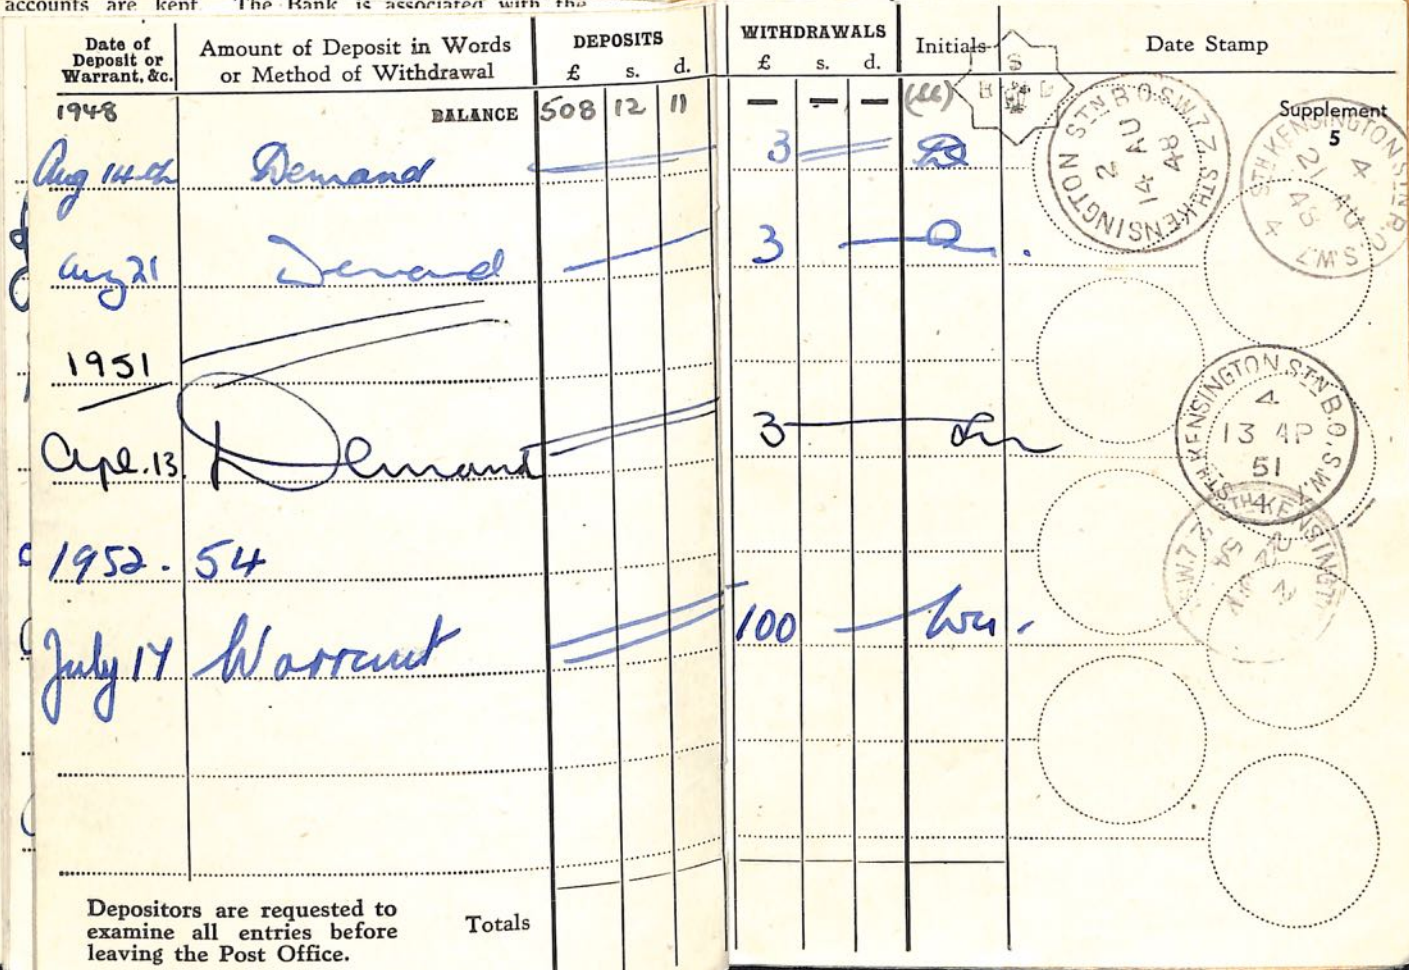 accounts are kept. The Bank is associated with the
Date of Deposit or Warrant, &c.
Amount of Deposit in Words or Method of Withdrawal
DEPOSITS
£ s. d.
WITHDRAWALS
£ s. d.
Initials
Date Stamp
1948 BALANCE 508 12 11 — — —
S
B D
Supplement
5
Aug 14th Demand 3
STH KENSINGTON STN B.O. S.W.7
2
14 AU
48
Aug 21 Demand 3
STH KENSINGTON STN B.O. S.W.7
4
21 AU
48
1951
Apl. 13. Demand 3
STH KENSINGTON STN B.O. S.W.7
4
13 AP
51
1952 - 54
July 17 Warrant 100
STH KENSINGTON
Depositors are requested to
examine all entries before
leaving the Post Office.
Totals